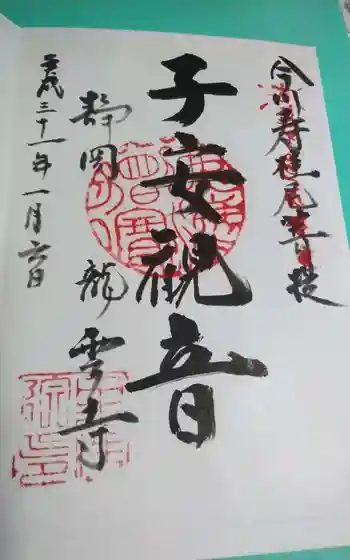 今川寿桂尼尊菩提
子安観音
静岡 龍雲寺
平成三十一年一月六日